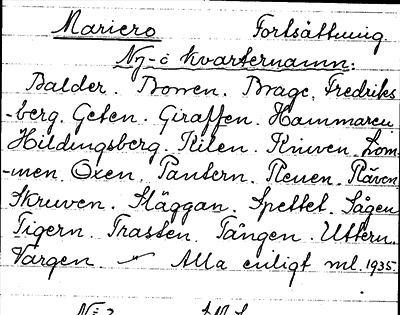 Mariero Fortsättning
Ny-o kvartersnamn:
Balder. Bowen. Brage. Fredriks
-berg. Geten. Giraffen. Hammaren
Hildingsberg. Kilen. Kniven. Lom-
-men. Oxen. Pantern. Renen. Räven
Skruven. Släggan. Spettet. Sågen
Tigern. Trasten. Tången. Uttern.
Vargen. Alla enligt ml. 1935.